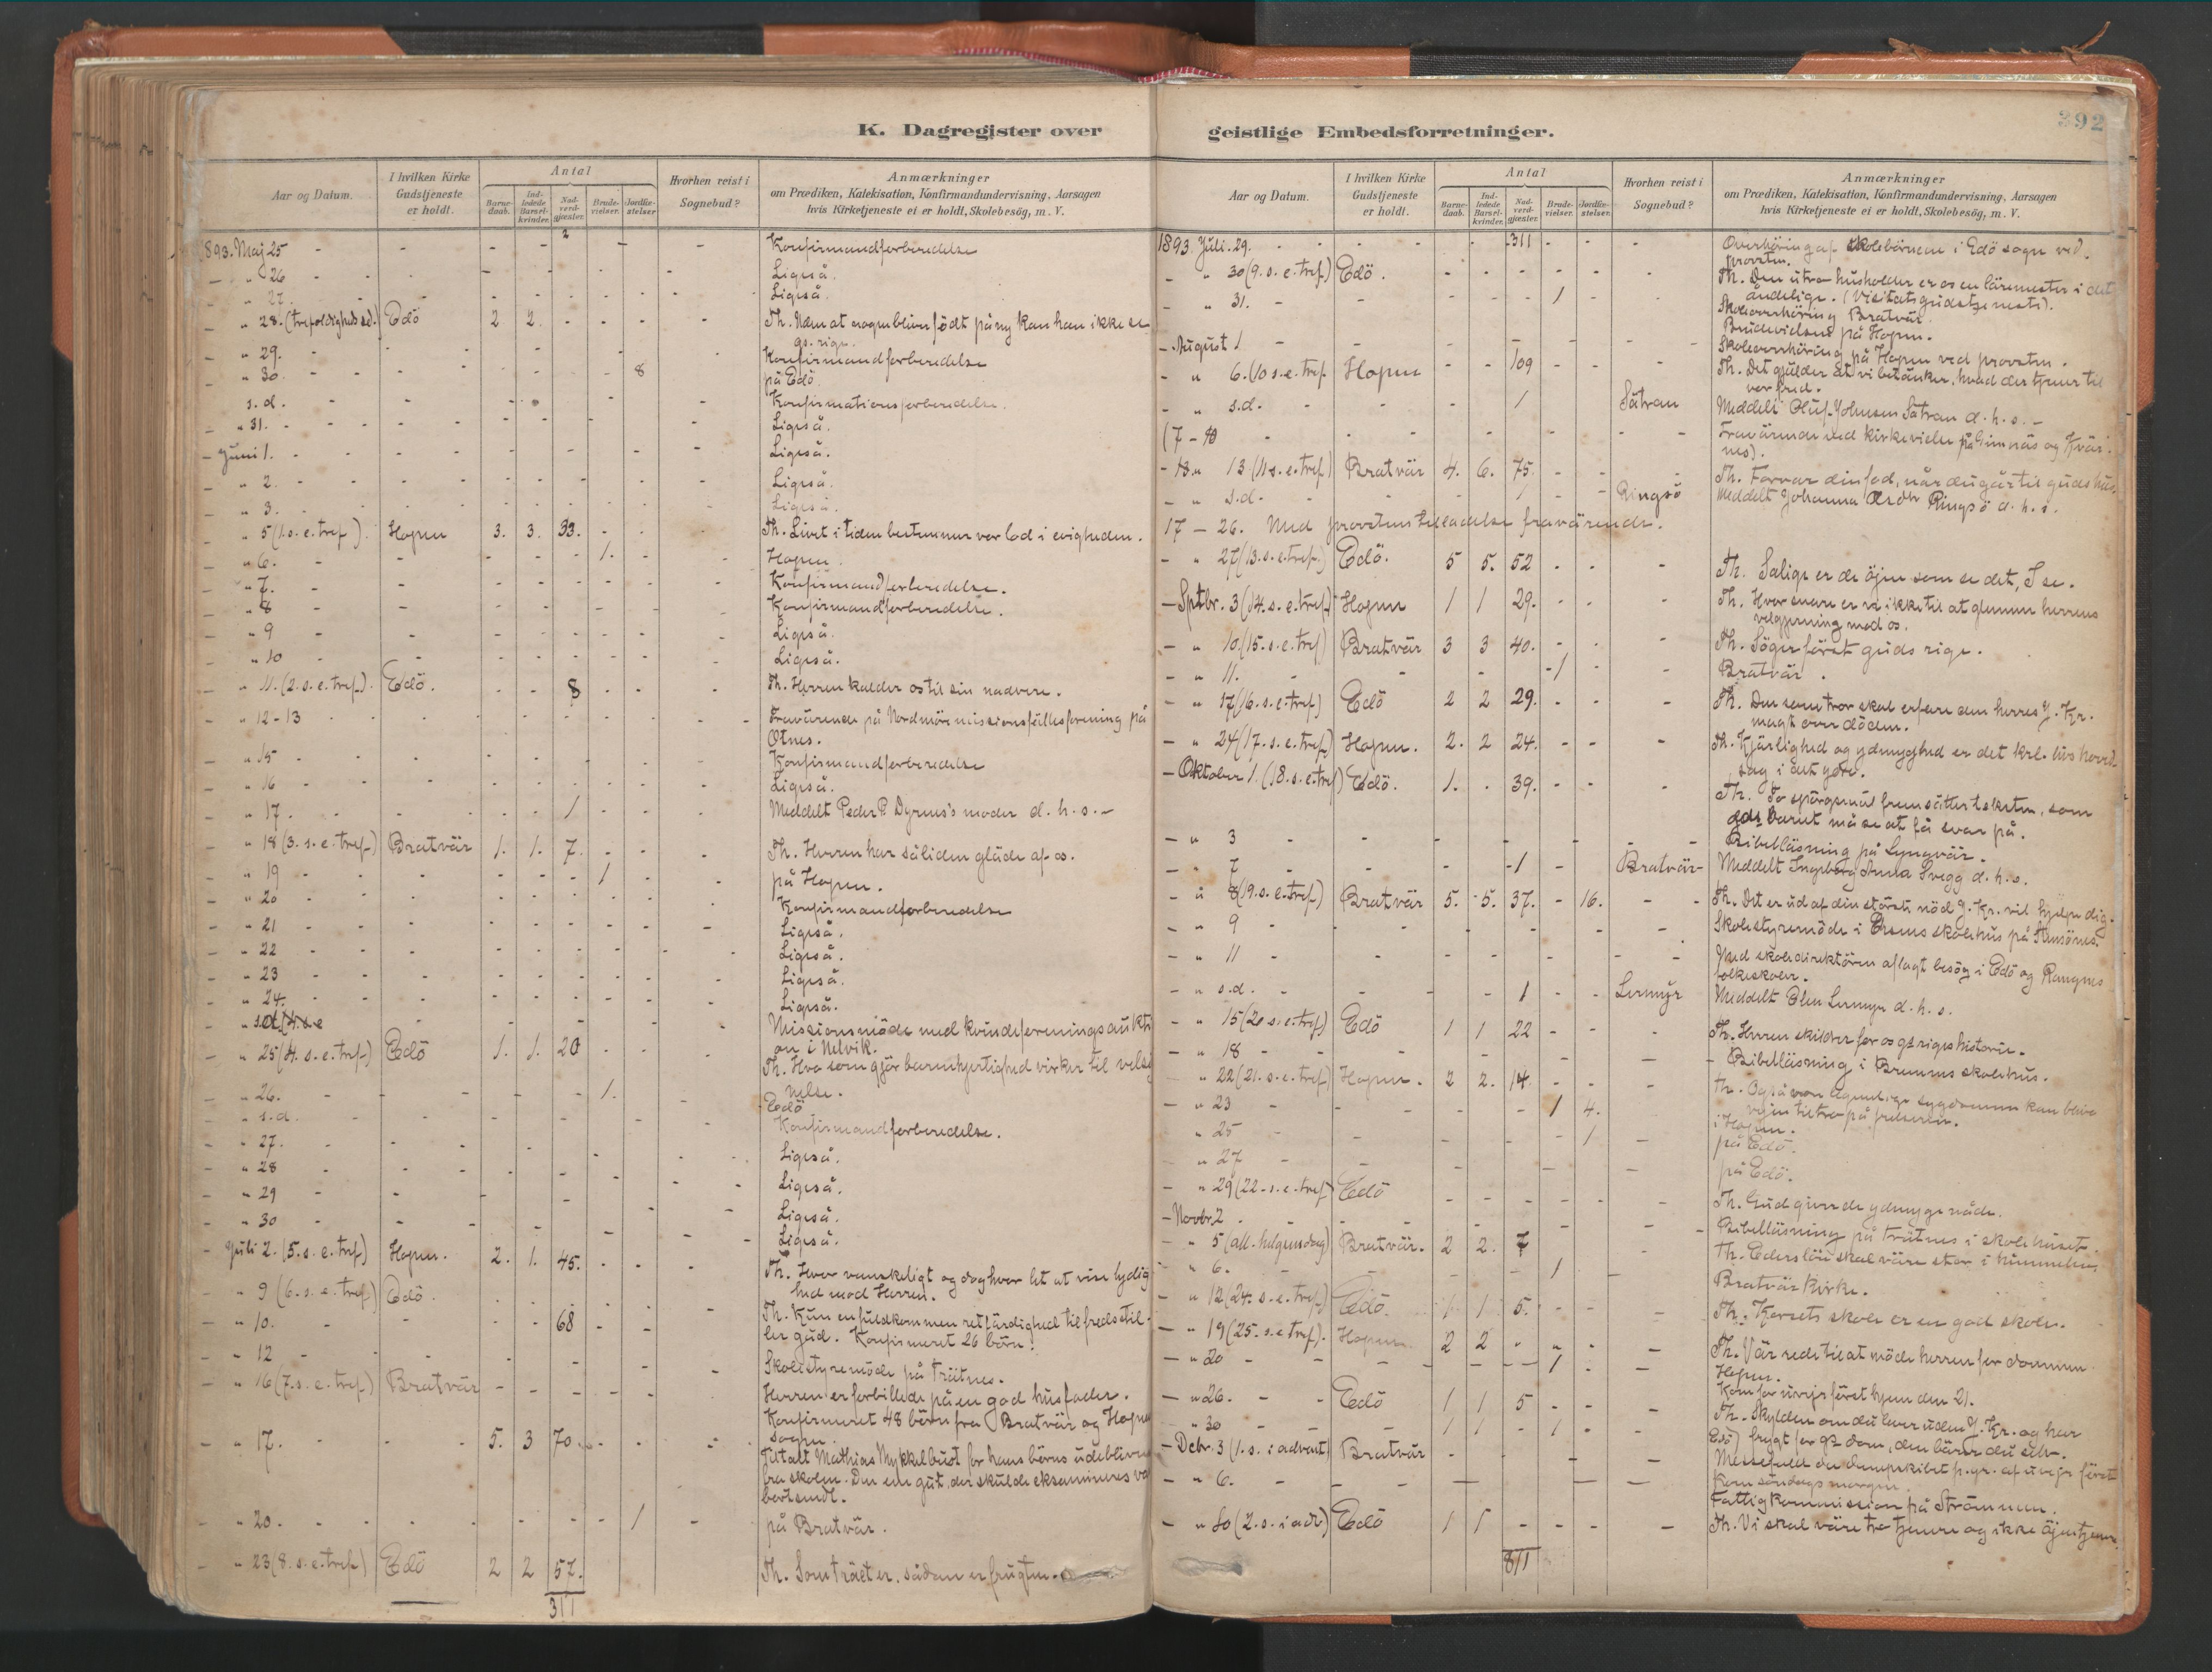 K. Dagregister over
Aar og Datum. I hvilken Kirke Gudstjeneste er holdt. Antal Barnedaab. Indledede Barselkvinder. Nadverdgjæster. Brudevielser. Jordfæstelser. Hvorhen reist i Sognebud? Anmærkninger om Prædiken, Katekisation, Konfirmandundervisning, Aarsagen hvis Kirketjeneste ei er holdt, Skolebesög, m. V.
1893. Maj 25 - - - - 2 - - Konfirmandforberedelse
" 26 Ligeså.
" 27. Ligeså.
" 28. (trefoldigheds sd.) Edö 2 2. Th. Uden at nogen bliver födt påny kan han ikke se
gs. rige.
" 29. Konfirmandforberedelse
" 30. 8 på Edö.
s. d. Konfirmationsforberedelse.
" 31. Ligeså.
Juni 1. Ligeså.
" 2. Ligeså.
" 3. Ligeså.
" 5 (1. s. e. tref.). Hopen 3. 3. 33. Th. Livet i tiden bestemmer vor lod i evigheden.
" 6. 1. Hopen.
" 7. Konfirmandforberedelse.
" 8 Konfirmandforberedelse.
" 9 Ligeså.
" 10 Ligeså.
" 11. (2. s. e. tref.). Edö. 8 Th. Herren kalder os til sin nadvere.
" 12-13 Fraværende på Nordmöre missionsfællesforening på
Otnes.
" 15 Konfirmandforberedelse
" 16 Ligeså.
" 17. 1 Meddelt Peder P. Dyrnes's moder d. h. s. -
" 18 (3. s. e. tref.) Bratvär 1. 1. 7. Th. Herren har såliden gläde af os.
" 19 1 på Hopen.
" 20 Konfirmandforberedelse
" 21 Ligeså.
" 22 Ligeså.
" 23 Ligeså.
" 24. Ligeså.
" s.d. (4. s. e Missionsmöde med kvindeforenings aukti
on i Nelvik.
" 25 (4. s. e. tref.) Edö 1. 1. 20 Th. Hvo som gjör barmhjertighed virker til velsig
nelse.
" 26. 1. Edö
" s. d. Konfirmandforberedelse.
" 27. Ligeså.
" 28 Ligeså.
" 29 Ligeså.
" 30 Ligeså.
Juli 2. (5. s. e. tref) Hopen. 2. 1. 45. Th. Hvor vanskeligt og dog hvor let at vise lydig
hed mod Herren.
" 9 (6. s. e. tref.) Edö. Th. Kun en fuldkommen retfärdighed tilfredsstil-
" 10. 68 ler gud. Konfirmeret 26 börn!
" 12 Skolestyremöde på Trätnes.
" 16 (7. s. e. tref.) Bratvär Herren er forbillede på en god husfader.
Konfirmeret 48 börn fra Bratvär og Hopen
sogne.
" 17. 5. 3 70 Tiltalt Mathias Mykkelbust for hans börns udebliven
fra skolen. Den ene gut, der skulde eksamineres var
bortsendt.
" 20. 1 på Bratvär.
" 23 (8. s. e. tref) Edö 2 2 57. Th. Som träet er, sådan er frugten.
311
geistlige Embedsforretninger.
392
Aar og Datum. I hvilken Kirke Gudstjeneste er holdt. Antal Barnedaab. Indledede Barselkvinder. Nadverdgjæster. Brudevielser. Jordfæstelser. Hvorhen reist i Sognebud? Anmærkninger om Prædiken, Katekisation, Konfirmandundervisning, Aarsagen hvis Kirketjeneste ei er holdt, Skolebesög, m. V.
1893. Juli. 29. 311 Overhöring af skolebörnene i Edö sogn ved
provsten.
" 30 (9. s. e. tref) Edö. Th. Den utro husholder er os en läremester i det
åndelige. (Visitatsgudstjeneste).
" 31. 1 Skoleoverhöring Bratvär.
Brudevielsen på Hopen.
August 1 Skoleoverhöring på Hopen ved provsten.
" 6. (10 s. e. tref Hopen 109 Th. Det gjälder at vi betänker, hvad der tjener til
vor fred.
" s.d. 1 Såtran Meddelt Oluf Johnsen Såtran d. h. s. -
(7 - 10 Fraværende ved kirkevielse på Gimnäs og Kvär-
nes).
" 13 (11 s. e. tref) Bratvär 4. 6. 75. Th. Forvar din fod, når du går til guds hus.
" s.d. 1 Ringsö Meddelt Johanna Olsdtr Ringsö d. h. s.
17 - 26. Med provstens tilladelse fraværende.
" 27 (13. s. e. tref.) Edö. 5 5. 52 Th. Salige er de öjne som se det, I se.
Sptbr. 3 (14. s. e. tref) Hopen 1 1 29. Th. Hvor snare er vi ikke til at glemme herrens
velgjerning mod os.
" 10. (15. s. e. tref) Bratvär 3 3 40. Th. Söger först guds rige.
" 11. 1 Bratvär.
" 17 (16. s. e. tref) Edö 2 2 29. Th. Den som tror skal erfare den herres J. Kr.
magt over döden.
" 24 (17. s. e. tref) Hopen. 2. 2 24. Th. Kjärlighed og ydmyghed er det krl. livs hoved
sag i det ydre.
Oktober 1. (18. s. e. tref) Edö. 1. 39. Th. To spörgsmål fremsätter teksten, som
gds barnet må se at få svar på.
" 3 Bibelläsning på Lyngvär.
" 7 1 Bratvär Meddelt Ingeborg Anna Svegg d. h. s.
" 8 (19. s. e. tref) Bratvär 5. 5. 37. 16. Th. Det er ud af din störste nöd J. Kr. vil hjelpe dig.
" 9 Skolestyremöde i skolehus på
" 11 Med skoledirektören aflagt besög i Edö og Rangnes
folkeskoler.
" s.d. 1 Lermyr Meddelt Lermyr d. h. s.
" 15 (20 s. e. tref) Edö 1 1 22 Th. Herren skildrer for os gs. riges historie.
" 18 Bibelläsning i skolehus.
" 22 (21. s. e. tref) Hopen. 2 2. 14. Th. Også vore legemlige sygdomme kan blive
vejen til tro på frelseren.
" 23 1 4. i Hopen.
" 25 1 på Edö.
" 27 på Edö.
" 29 (22. s. e. tref) Edö Th. Gud giver de ydmyge nåde.
Novbr. 2 Bibelläsning på Trätnes i skolehuset.
" 5 (all. helgensdag) Bratvär. 2 2. 7 Th. Eders lön skal väre stor i himmelen.
" 6. 1 Bratvär kirke.
" 12 (24. s. e. tref) Edö. 1 1 5. Th. Korsets skole er en god skole.
" 19 (25. s. e tref). Hopen 2 2 Th. Vär rede til at möde herren for dommen
" 20 1 Hopen.
Kom for uvejr först hjem den 21.
" 26. Edö 1 1 5 Th. Skylden om du lever uden J. Kr. og har
" 30 1 1 1 Edö) frygt for gs dom, den bärer du selv.
Debr. 3 (1. s. i advent) Bratvär Messefald da dampskibet p. gr. af uvejr först
kom söndags morgen.
" 6. Fattigkommission på Strömmen.
" 10 (2. s. i adv.) Edö 1 1 Th. Vi skal väre tro tjenere og ikke öjentjenere.
811